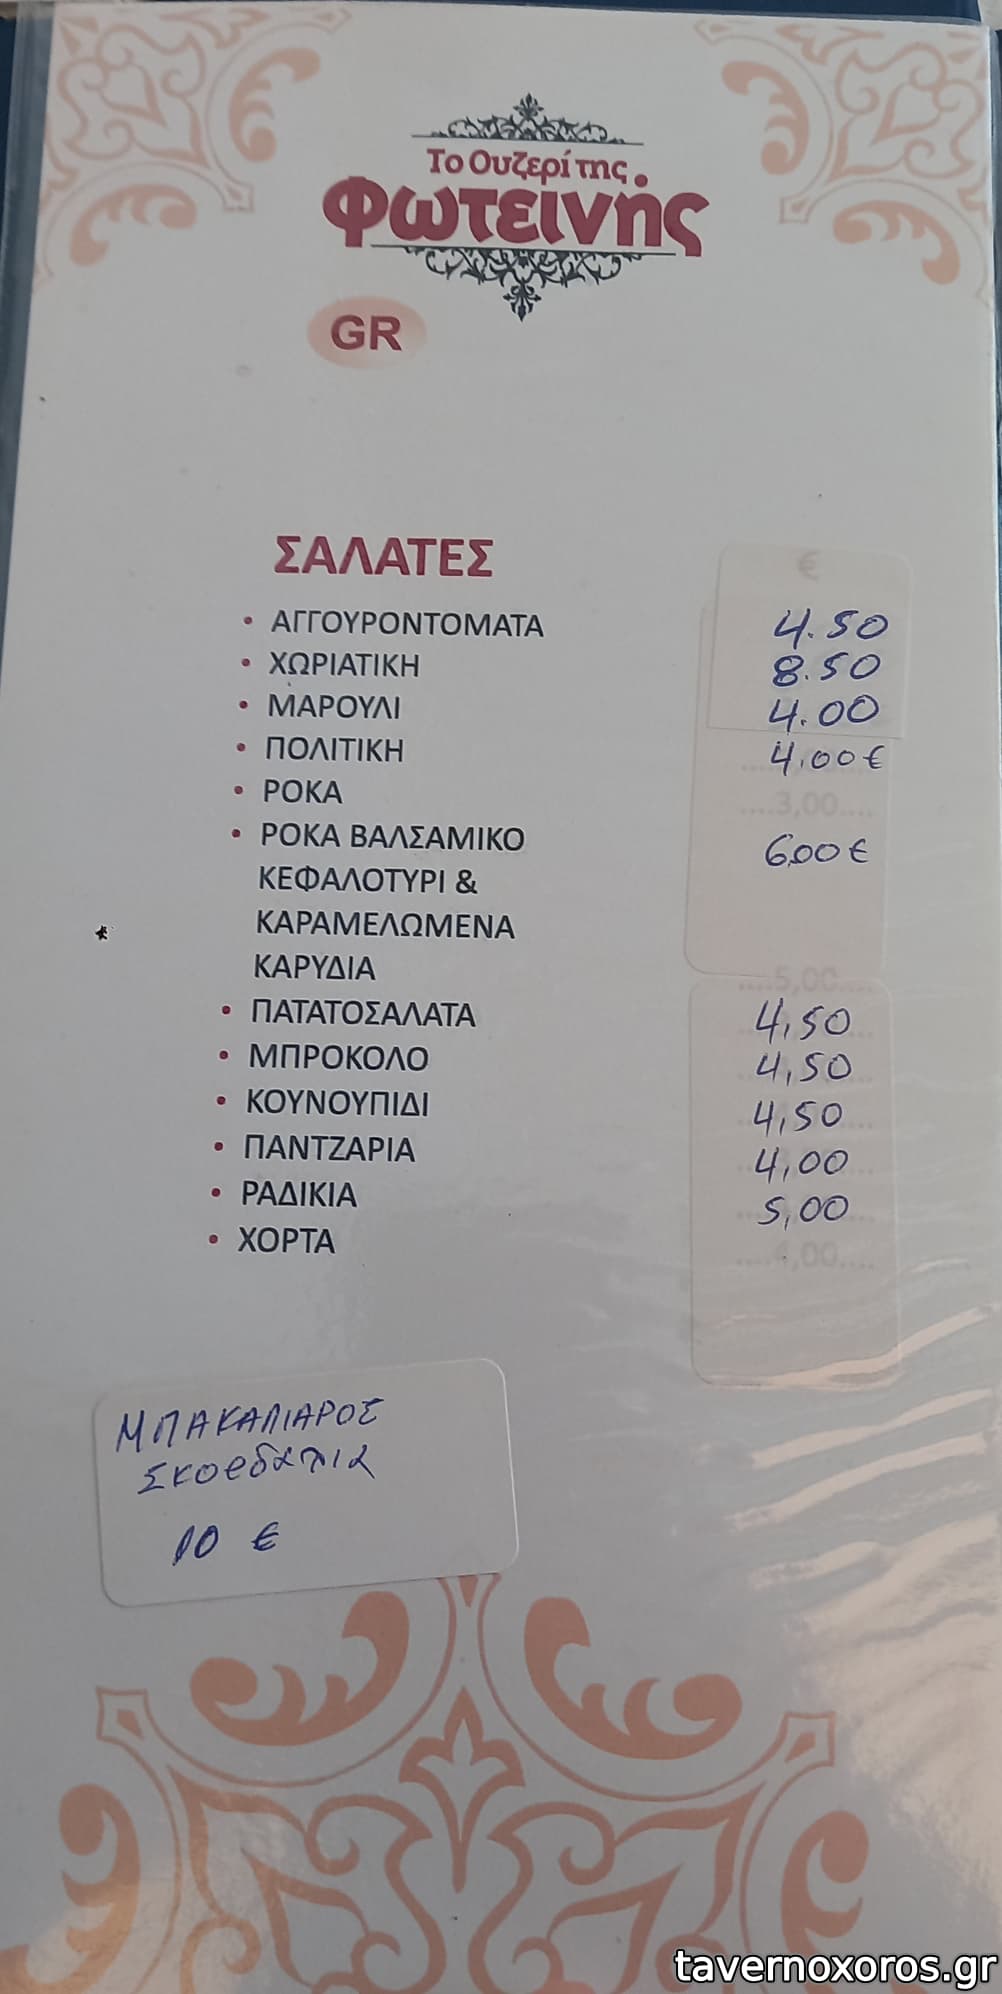 Το Ουζερί της
Φωτεινής
GR
ΣΑΛΑΤΕΣ
€
• ΑΓΓΟΥΡΟΝΤΟΜΑΤΑ 4.50
• ΧΩΡΙΑΤΙΚΗ 8.50
• ΜΑΡΟΥΛΙ 4.00
• ΠΟΛΙΤΙΚΗ 4,00€
• ΡΟΚΑ ....3,00....
• ΡΟΚΑ ΒΑΛΣΑΜΙΚΟ 6,00€
ΚΕΦΑΛΟΤΥΡΙ &
ΚΑΡΑΜΕΛΩΜΕΝΑ
ΚΑΡΥΔΙΑ ....5,00....
• ΠΑΤΑΤΟΣΑΛΑΤΑ 4,50
• ΜΠΡΟΚΟΛΟ 4,50
• ΚΟΥΝΟΥΠΙΔΙ 4,50
• ΠΑΝΤΖΑΡΙΑ 4,00
• ΡΑΔΙΚΙΑ 5,00
• ΧΟΡΤΑ ....4,00....
ΜΠΑΚΑΛΙΑΡΟΣ
Σκορδαλια
10 €
tavernoxoros.gr